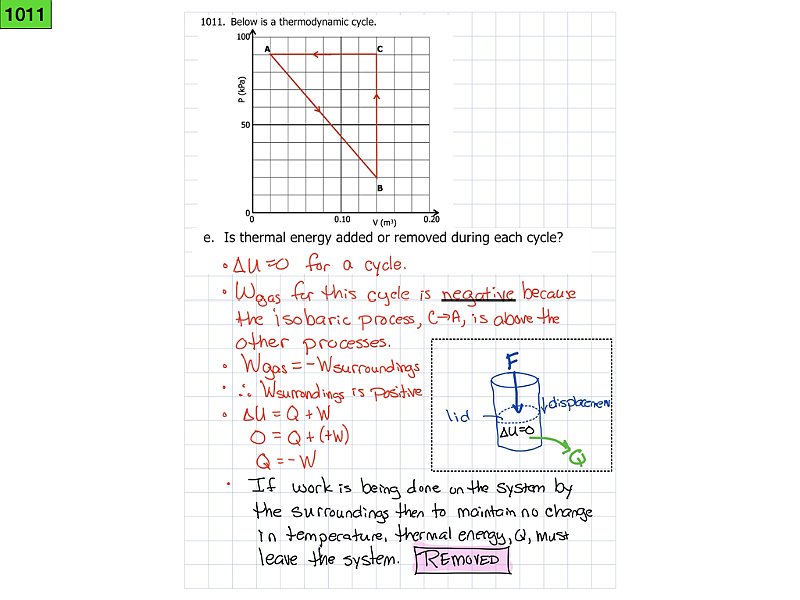 1011
1011. Below is a thermodynamic cycle.
100
A
C
P (kPa)
50
B
0
0
0.10
V (m³)
0.20
e. Is thermal energy added or removed during each cycle?
• ΔU=0 for a cycle.
• Wgas for this cycle is negative because
the isobaric process, C→A, is above the
other processes.
• Wgas = -Wsurroundings
• ∴ Wsurrondings is positive
• ΔU = Q + W
0 = Q + (+W)
Q = - W
F
displacement
lid
ΔU=0
Q
• If work is being done on the system by
the surroundings then to maintain no change
in temperature, thermal energy, Q, must
leave the system. REMOVED